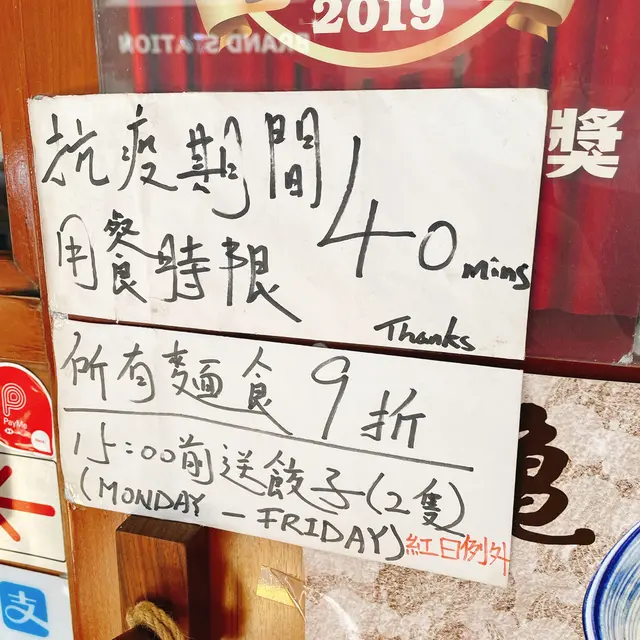 2019
BRAND STATION
獎
抗疫期間
用餐時限
40 mins
Thanks
所有麵食9折
15:00前送餃子(2隻)
(MONDAY - FRIDAY)紅日例外
PayMe
支